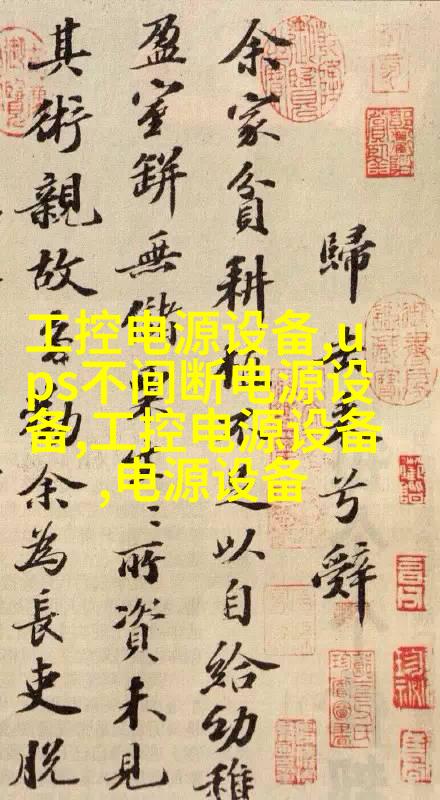 工控电源设备,u
ps不间断电源设
备,工控电源设备
,电源设备
歸去來兮辭
余家貧耕植不足以自給幼稚
盈室缾無儲粟生〻所資未見
其術親故多勸余為長吏脫